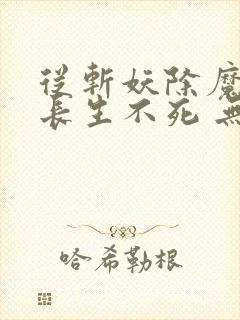 從斬妖除魔
長生不死 無
哈希勒根